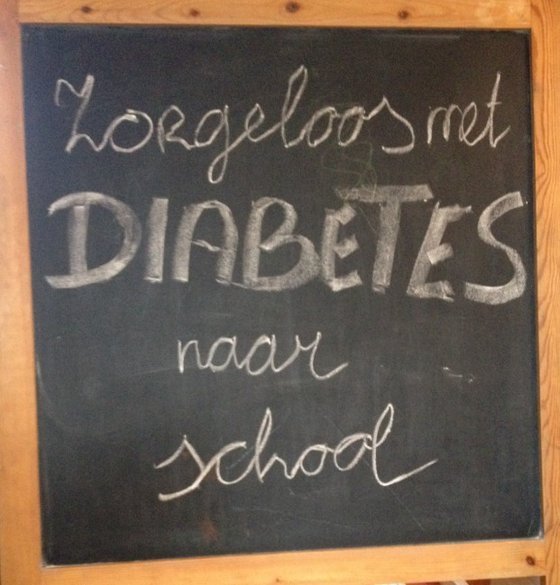 Zorgeloos met
DIABETES
naar
school